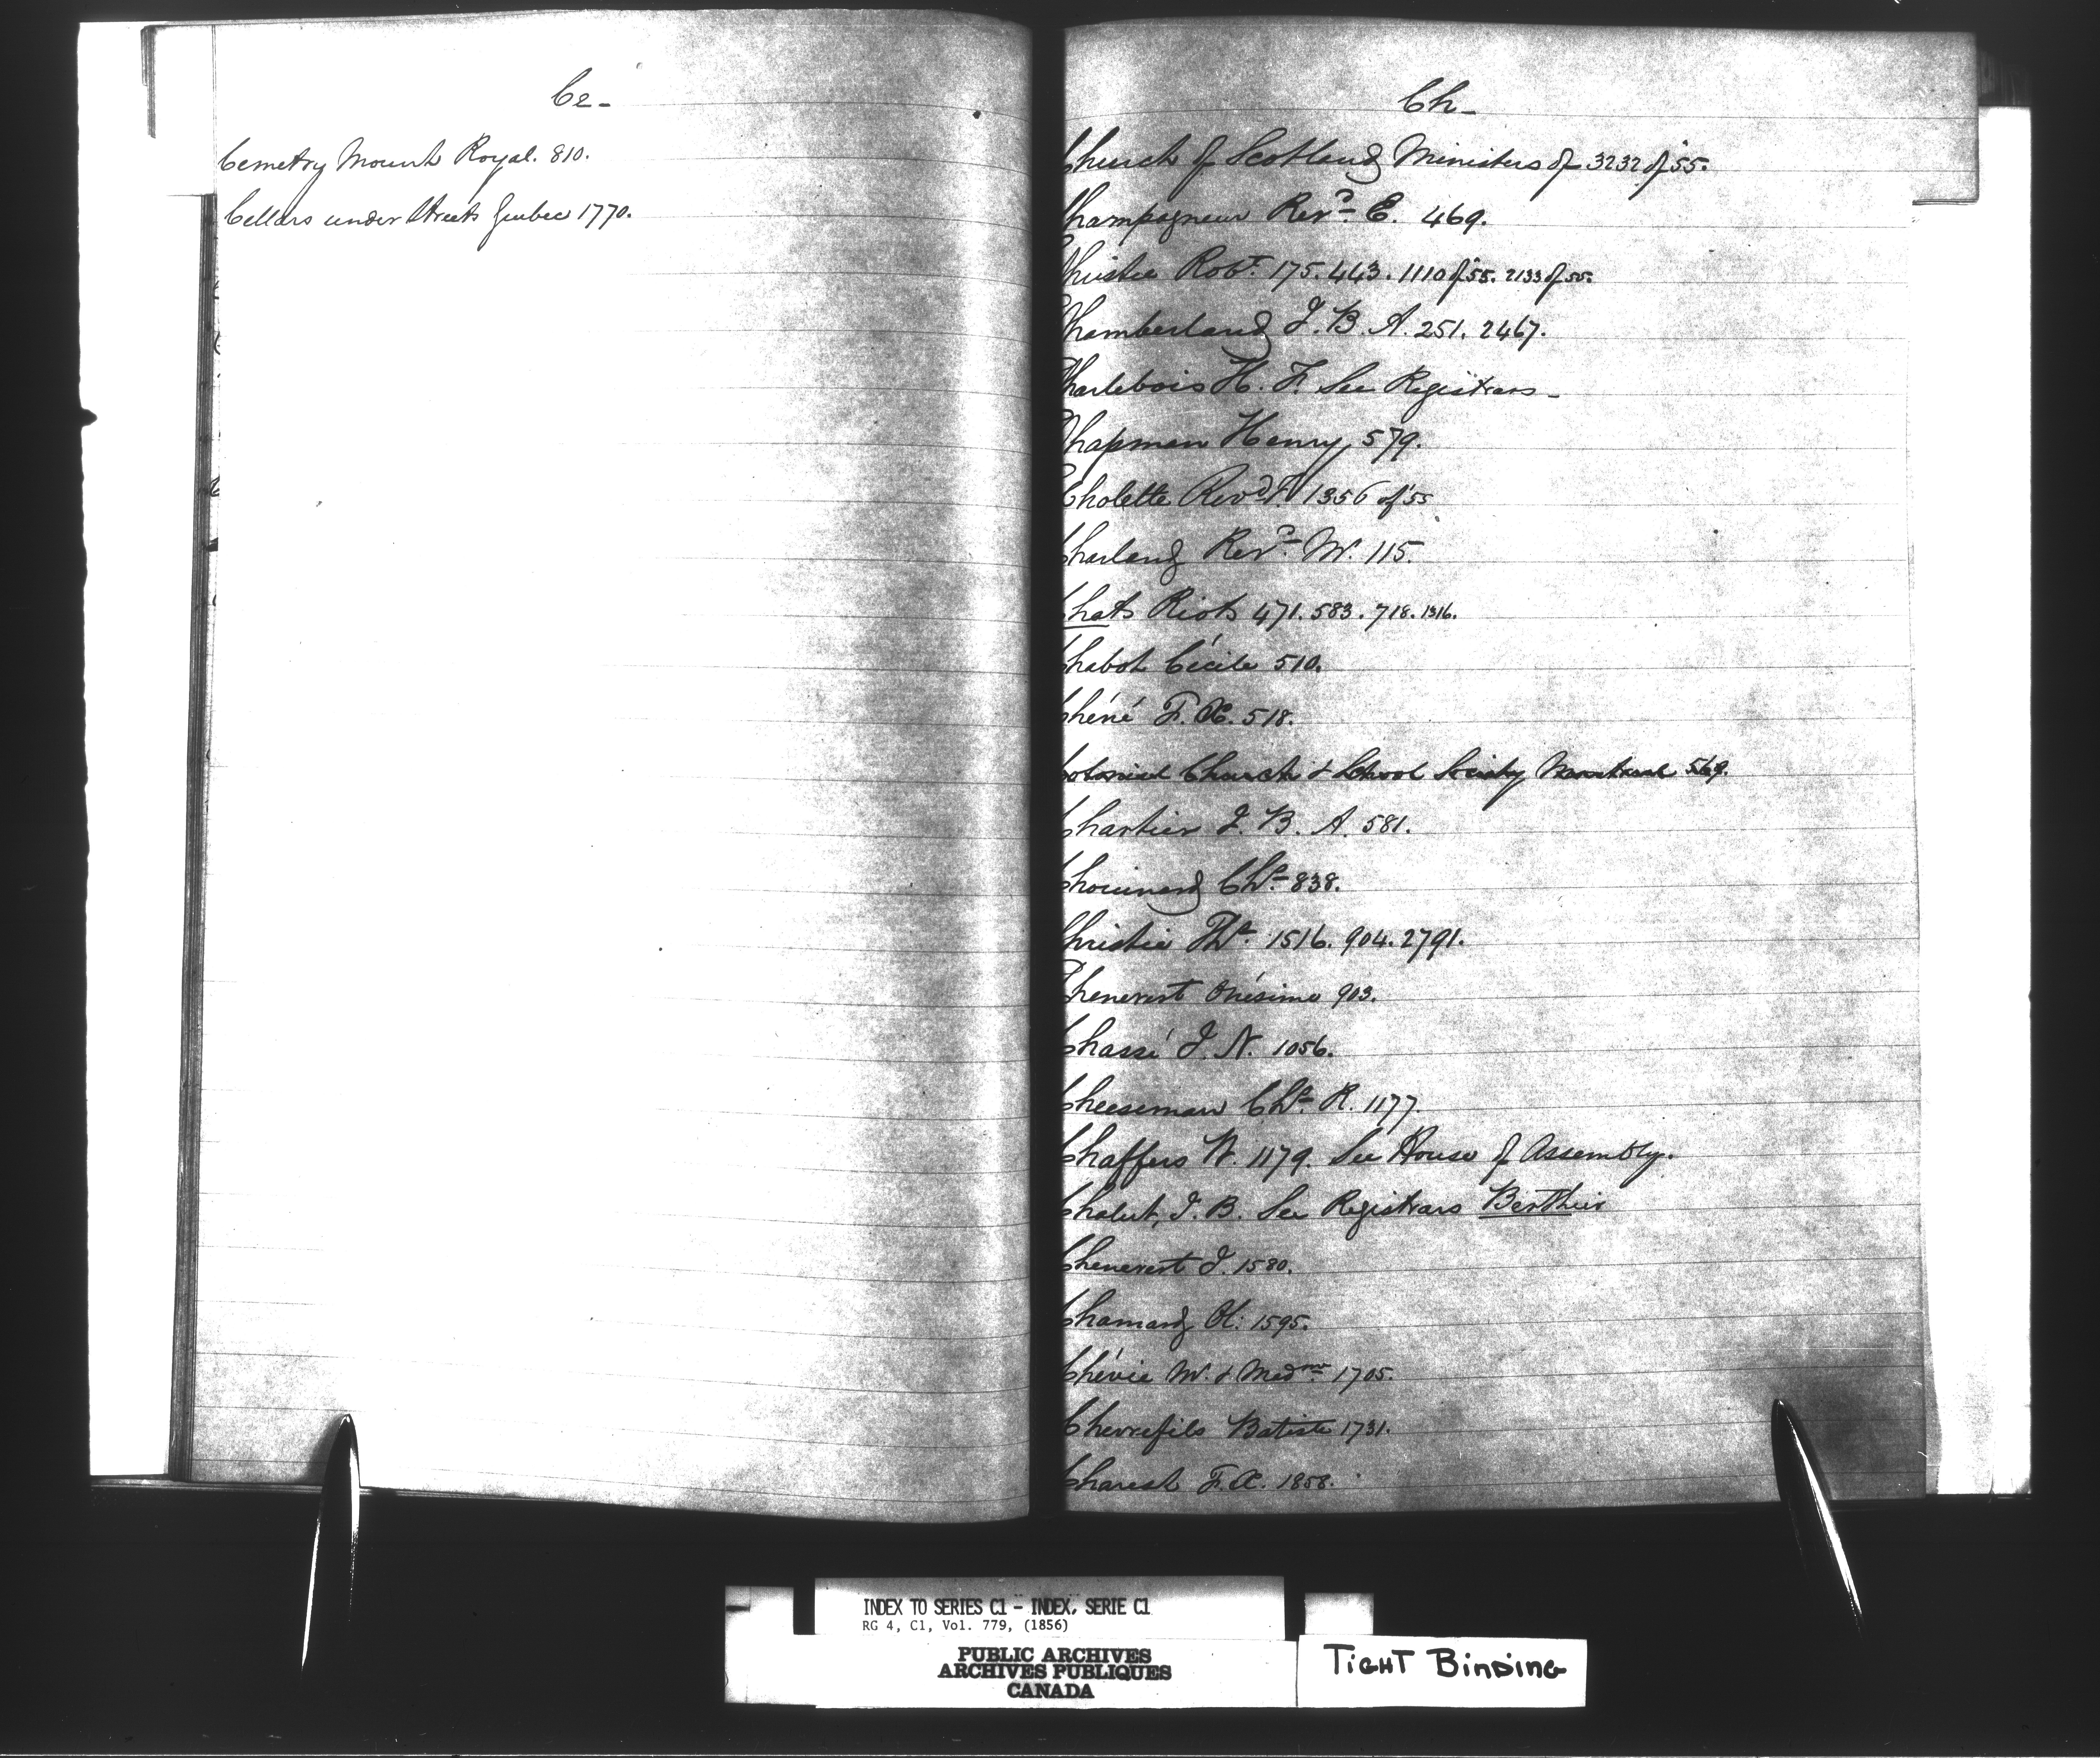 Ce-
Cemetry Mount Royal. 810.
Cellars under Streets Quebec 1770.
Ch-
Church of Scotland Ministers of 3232 of 55.
Champagneur Revd. E. 469.
Christie Robt. 175. 443. 1110 of 55. 2133 of 55.
Chamberland J. B. A. 251. 2467.
Charlebois H. F. See Registrars-
Chapman Henry 579.
Cholette Revd. F. 1356 of 55
Charland Revd. M. 115.
Chats Riots 471. 583. 718. 1316.
Chabot Cécile 510.
Chéné F. X. 518.
Colonial Church & School Society Montreal 569.
Chartier J. B. A. 581.
Chouinard Chs. 838.
Christie Ths. 1516. 904. 2791.
Chenevert Onésime 903.
Chassé J. N. 1056.
Cheeseman Chs. R. 1177.
Chaffers W. 1179. See House of Assembly.
Chalut, J. B. See Registrars Berthier
Chenevert J. 1580.
Chamard H: 1595.
Chévie M. & Madme 1705.
Chevrefils Batiste 1731.
Charest F. X. 1858.
INDEX TO SERIES C1 - INDEX, SERIE C1
RG 4, C1, Vol. 779, (1856)
PUBLIC ARCHIVES
ARCHIVES PUBLIQUES
CANADA
TIGHT BINDING